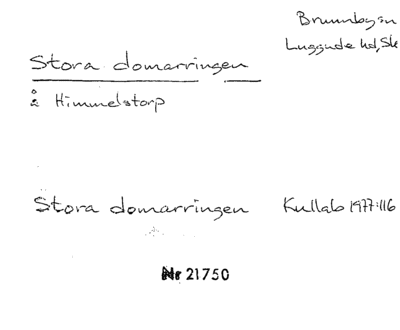 Brunnby sn
Luggude hd, Sk
Stora domarringen
å Himmelstorp
Stora domarringen Kullab 1977:116
Nr 21750